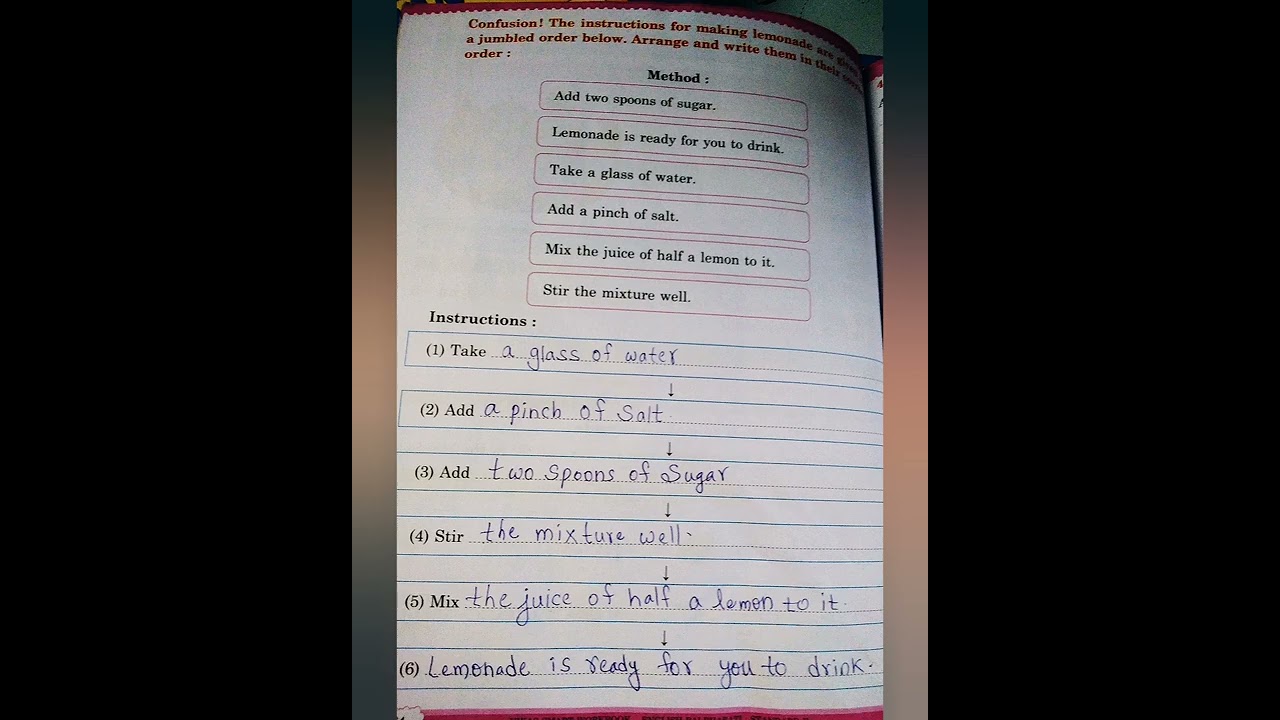 Confusion! The instructions for making lemonade are
a jumbled order below. Arrange and write them in their
order :
Method :
Add two spoons of sugar.
Lemonade is ready for you to drink.
Take a glass of water.
Add a pinch of salt.
Mix the juice of half a lemon to it.
Stir the mixture well.
Instructions :
(1) Take a glass of water
↓
(2) Add a pinch of Salt.
↓
(3) Add two spoons of Sugar
↓
(4) Stir the mixture well.
↓
(5) Mix the juice of half a lemon to it.
↓
(6) Lemonade is ready for you to drink.